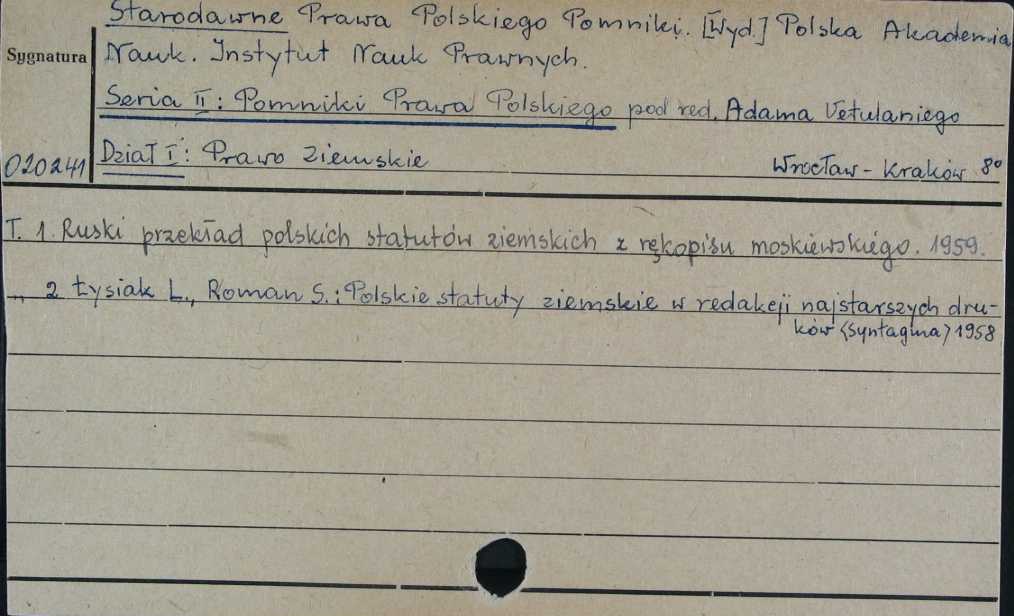 Starodawne Prawa Polskiego Pomniki. [Wyd.] Polska Akademia
Sygnatura
Nauk. Instytut Nauk Prawnych.
Seria II: Pomniki Prawa Polskiego pod red. Adama Vetulaniego
020241
Dział I: Prawo Ziemskie
Wrocław - Kraków 8°
T. 1. Ruski przekład polskich statutów ziemskich z rękopisu moskiewskiego. 1959.
„ 2 Łysiak L., Roman S.: Polskie statuty ziemskie w redakcji najstarszych dru-
ków (Syntagma) 1958